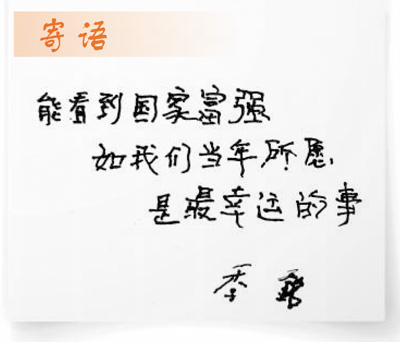 寄语
能看到国家富强
如我们当年所愿，
是最幸运的事
季